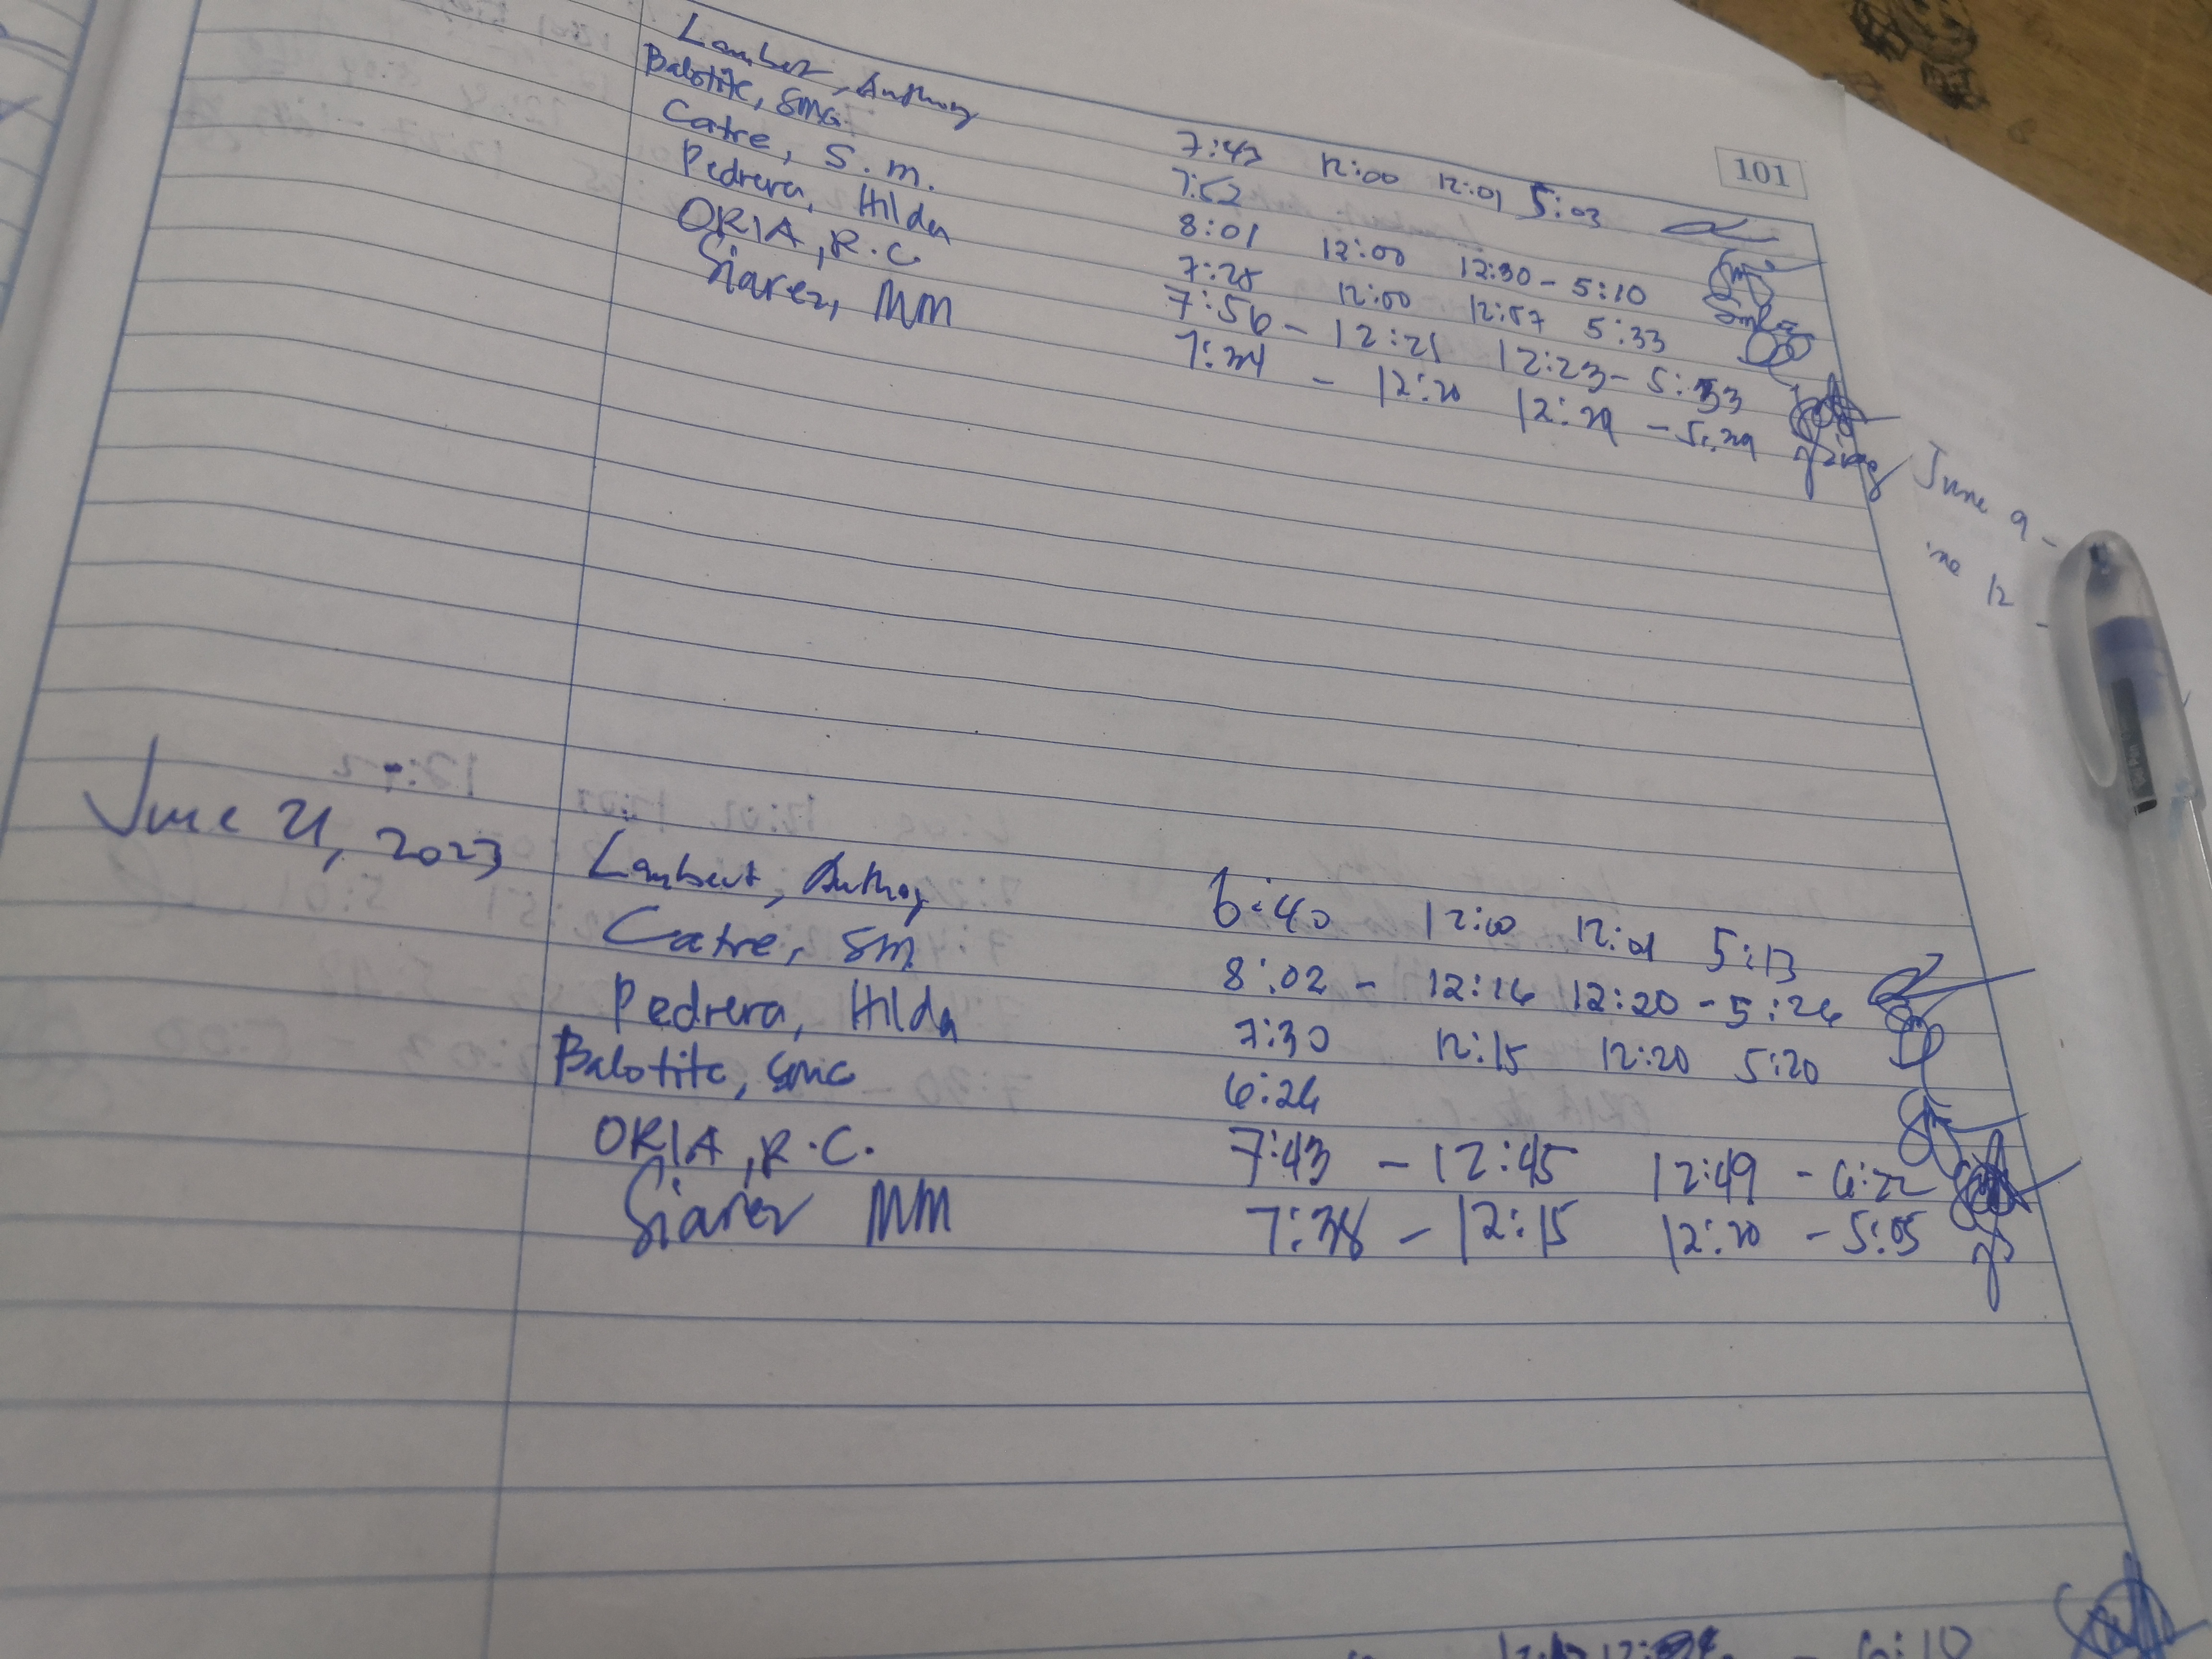 101
Lambert, Anthony 7:43 12:00 12:01 5:03
Balotite, SMG 7:52
Catre, S.m. 8:01 12:00 12:30 - 5:10
Pedrera, Hilda 7:28 12:00 12:57 5:33
ORIA, R.C. 7:56 - 12:21 12:23 - 5:33
Siarez, MM 7:34 - 12:20 12:29 - 5:29
June 9 -
ne 12 -
June 21, 2023 Lambert, Anthony 6:40 12:00 12:01 5:13
Catre, SM 8:02 - 12:16 12:20 - 5:26
Pedrera, Hilda 7:30 12:15 12:20 5:20
Balotite, SMG 6:26
ORIA, R.C. 7:43 - 12:45 12:49 - 6:22
Siarez MM 7:38 - 12:15 12:20 - 5:05
- 6:10